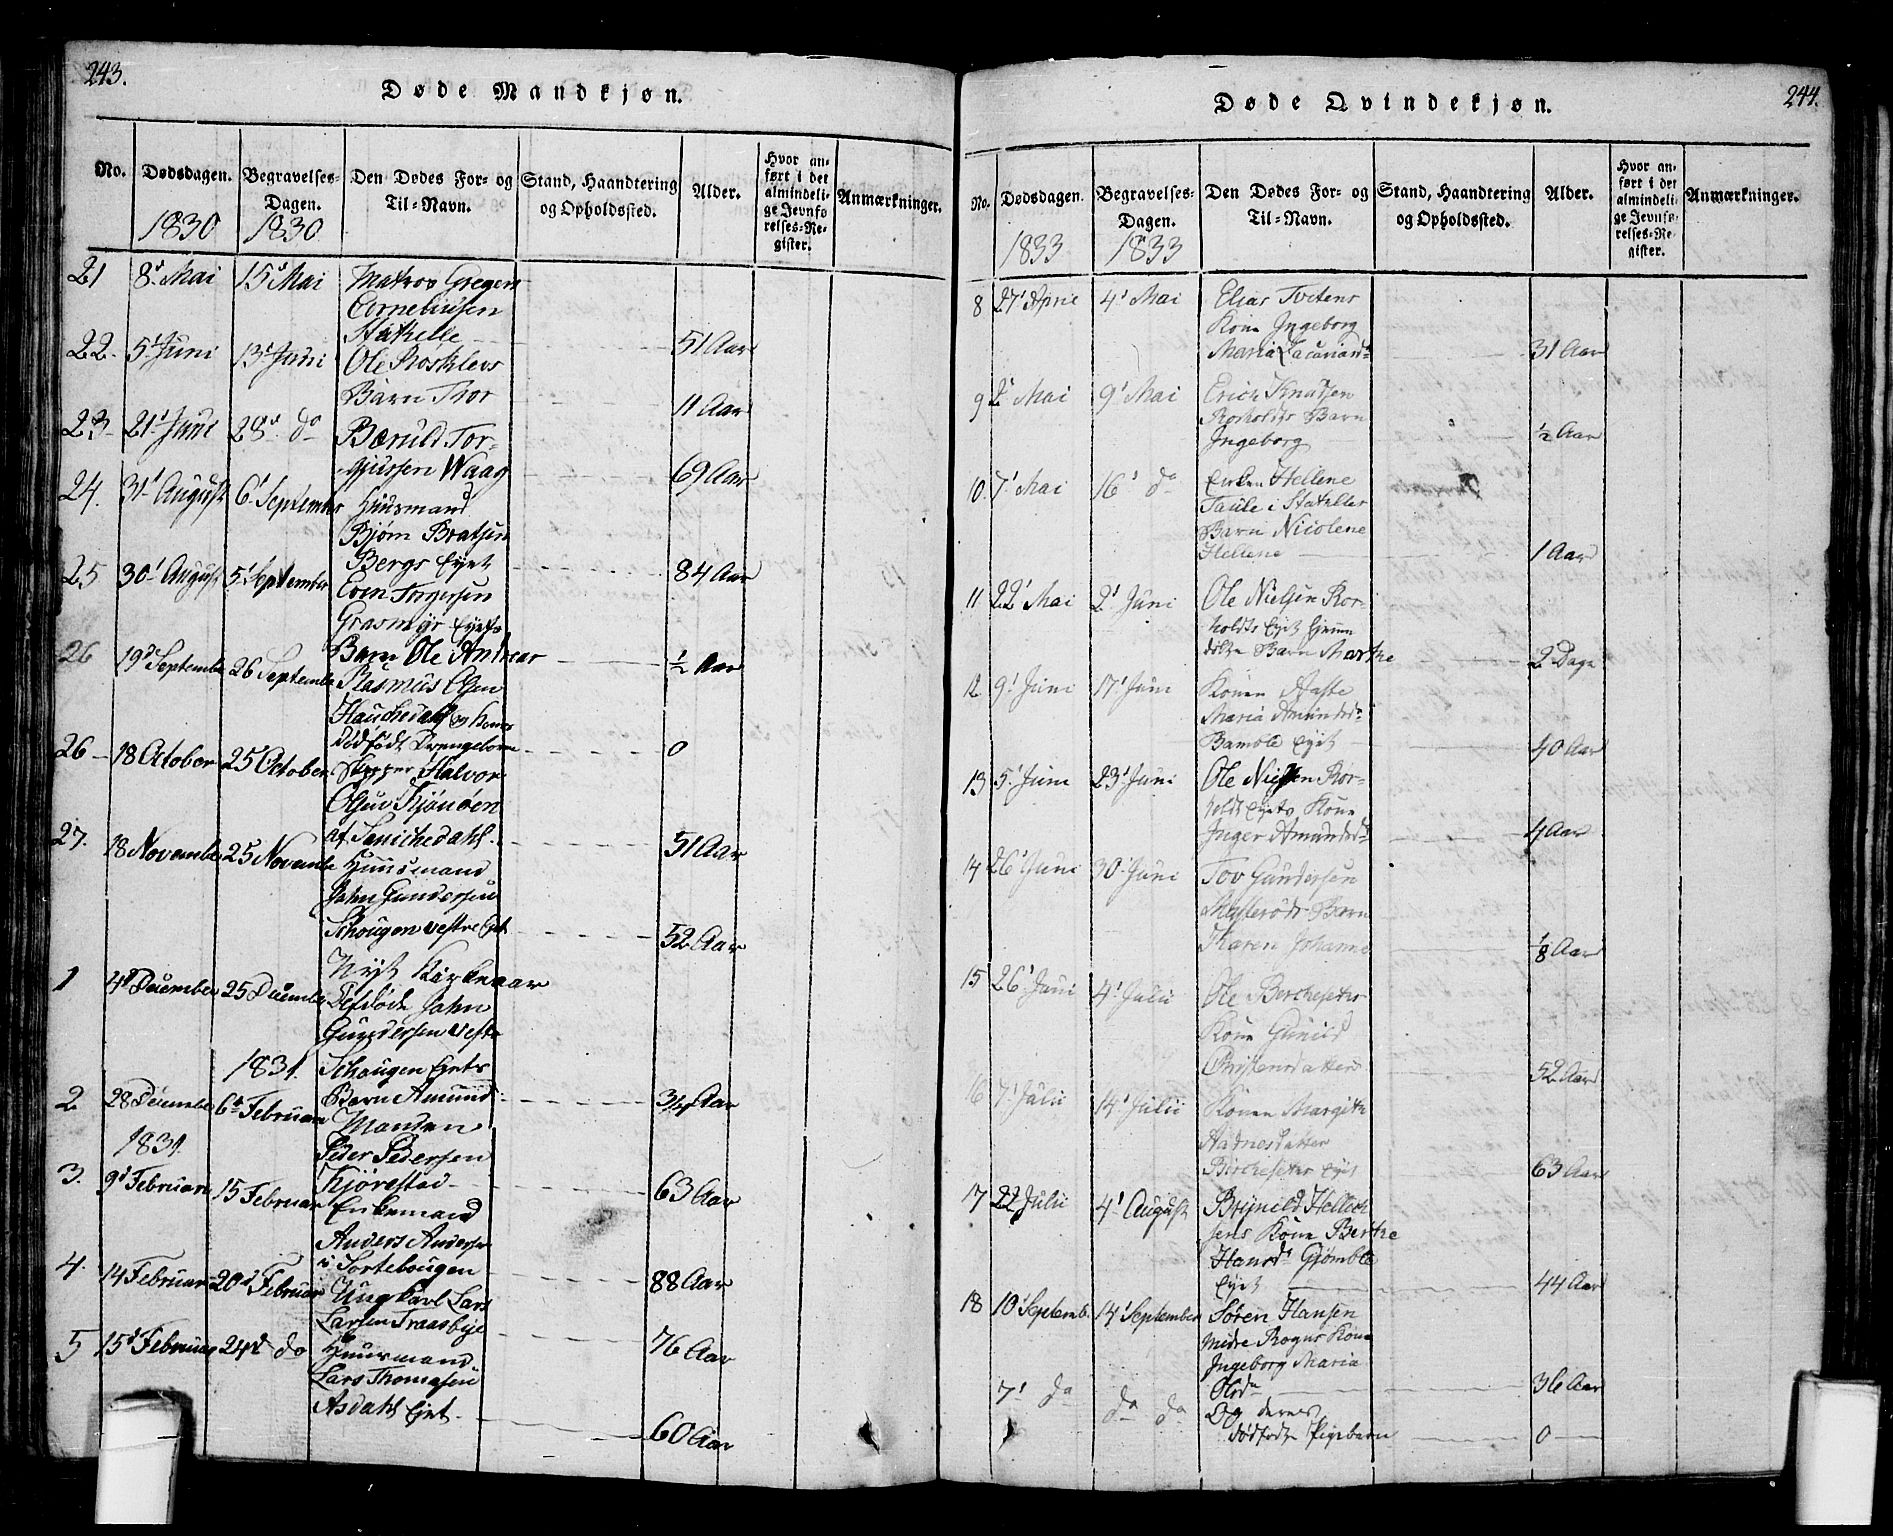 243.
Døde Mandkjøn.
No. Dødsdagen. Begravelses-Dagen. Den Dødes For- og Til-Navn. Stand, Haandtering og Opholdssted. Alder. Hvor anført i det almindelige Jevnførelses-Register. Anmærkninger.
1830 1830
21 8d Mai 15d Mai Matros Gregers
Corneliussen
Stathelle 51 Aar
22. 5t Juni 13t Juni Ole Rosklevs
Barn Tor 11 Aar
23. 21t Juni 28d do Bæruld Tor-
gjussen Waag 69 Aar
24. 31t August 6t September Huusmand
Bjørn Bratsen
Bergs Eyet 84 Aar
25 30t August 5t September Even Torgersen
Grasmyr Eyets
Barn Ole Andreas ½ Aar
26 19d September 26 September Rasmus Olsen
Hauchedahl og Kones
dødfødt Drengebarn 0
26 18 October 25 October Skipper Halvor
Olsen
af 51 Aar
27. 18 November 25 November Huusmand
John Gundersen
Schougen vestre Eyet 52 Aar
Nyt Kirkeaar
1 4d December 25 December John
Gundersen vestre
1831. Schougen Eyets
Barn Amund 3/4 Aar
2 28 December 6t Februar Manden
1831. Peder Pedersen
Kjørestad 63 Aar
3. 9d Februar 15 Februar Enkemand
Anders Andersen
i Sortebougen 88 Aar
4. 14 Februar 20d Februar Ungkarl Lars
Larsen Traasbye 76 Aar
5 15d Februar 24d do Huusmand
Lars Thomasen
Asdahl Eyet 60 Aar
244.
Døde Qvindekjøn.
No. Dødsdagen. Begravelses-Dagen. Den Dødes For- og Til-Navn. Stand, Haandtering og Opholdssted. Alder. Hvor anført i det almindelige Jevnførelses-Register. Anmærkninger.
1833 1833
8 27t April 4t Mai Elias Tvetens
Kone Ingeborg
Maria 31 Aar
9 2t Mai 9t Mai Erich Knutsen
Rorholdts Barn
Ingeborg ½ Aar
10. 7t Mai 16t do Enken Hellene
Taule i Stathelles
Barn Nicolene
Hellene 1 Aar
11 22t Mai 2t Juni Ole Nielsen Ror-
holdts Eyet
Barn Marthe 2 Dage
12 9t Juni 17t Juni Konen Aaste
Maria Amundsd.
Bamble Eyet 40 Aar
13 5t Juni 23t Juni Ole Nielsen Ror-
holdt Eyets Kone
Inger Amundsd. 4 Aar
14 26t Juni 30t Juni Tov Gundersen
Barn
Karen Johanne 1/8 Aar
15 26t Juni 4t Julii Ole Bercheseters
Kone Gunild
Christensdatter 52 Aar
16 7t Julii 14t Julii Konen Margith
Aadnesdatter
Bercheseter Eyet 63 Aar
17 22 Julii 4t August Brynild Hellech
sens Kone Berthe
Hansd. Gjømble
Eyet 44 Aar
18 10t Septemb. 14t September Søren Hansen
midre Rogns Kone
Ingeborg Maria
Olsd. 36 Aar
7t do do do Og deres
dødfødte Pigebarn 0